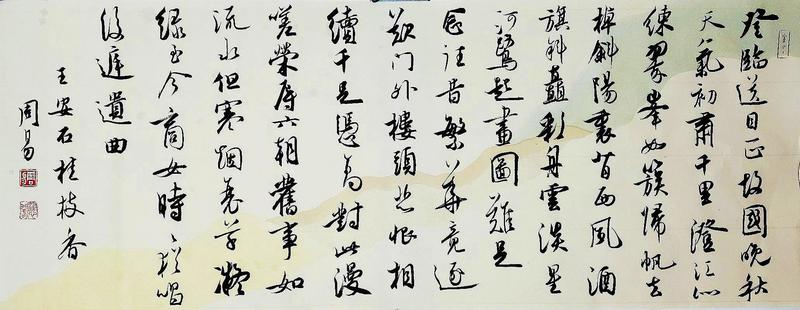 登臨送目正故國晚秋
天氣初肅千里澄江似
練翠峯如簇歸帆去
棹斜陽裏背西風酒
旗斜矗彩舟雲淡星
河鷺起畫圖難足
念往昔繁華竟逐
歎門外樓頭悲恨相
續千古憑高對此漫
嗟榮辱六朝舊事如
流水但寒煙衰草凝
綠至今商女時々猶唱
後庭遺曲
王安石桂枝香
周易